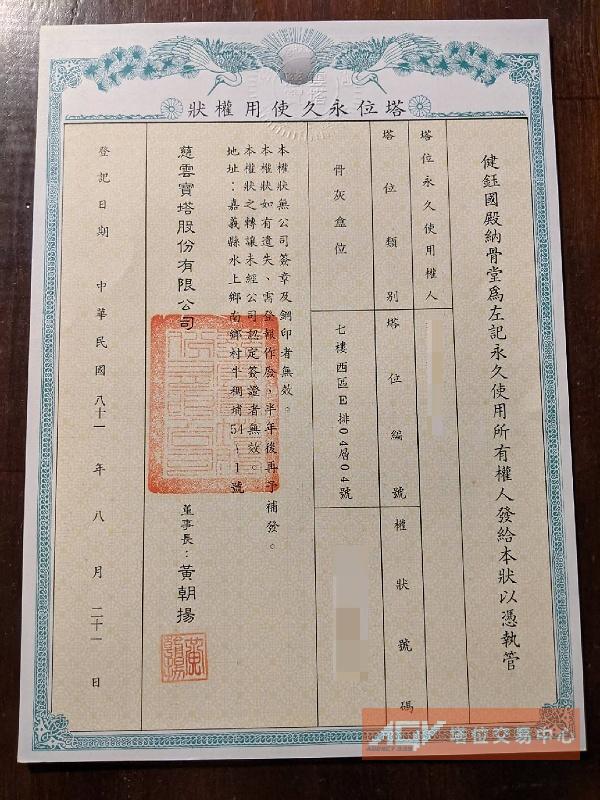 塔位永久使用權狀
健鈺國殿納骨堂為左記永久使用所有權人發給本狀以憑執管
塔位永久使用權人
塔位類別
塔位編號
權狀號碼
骨灰盒位
七樓西區E排04層04號
本權狀無公司簽章及鋼印者無效。
本權狀如有遺失、需登報作廢、半年後再予補發。
本權狀之轉讓未經公司認定簽證者無效。
地址：嘉義縣水上鄉南鄉村牛稠埔54-1號
慈雲寶塔股份有限公司
董事長：黃朝揚
登記日期 中華民國八十一年八月二十一日
塔位交易中心